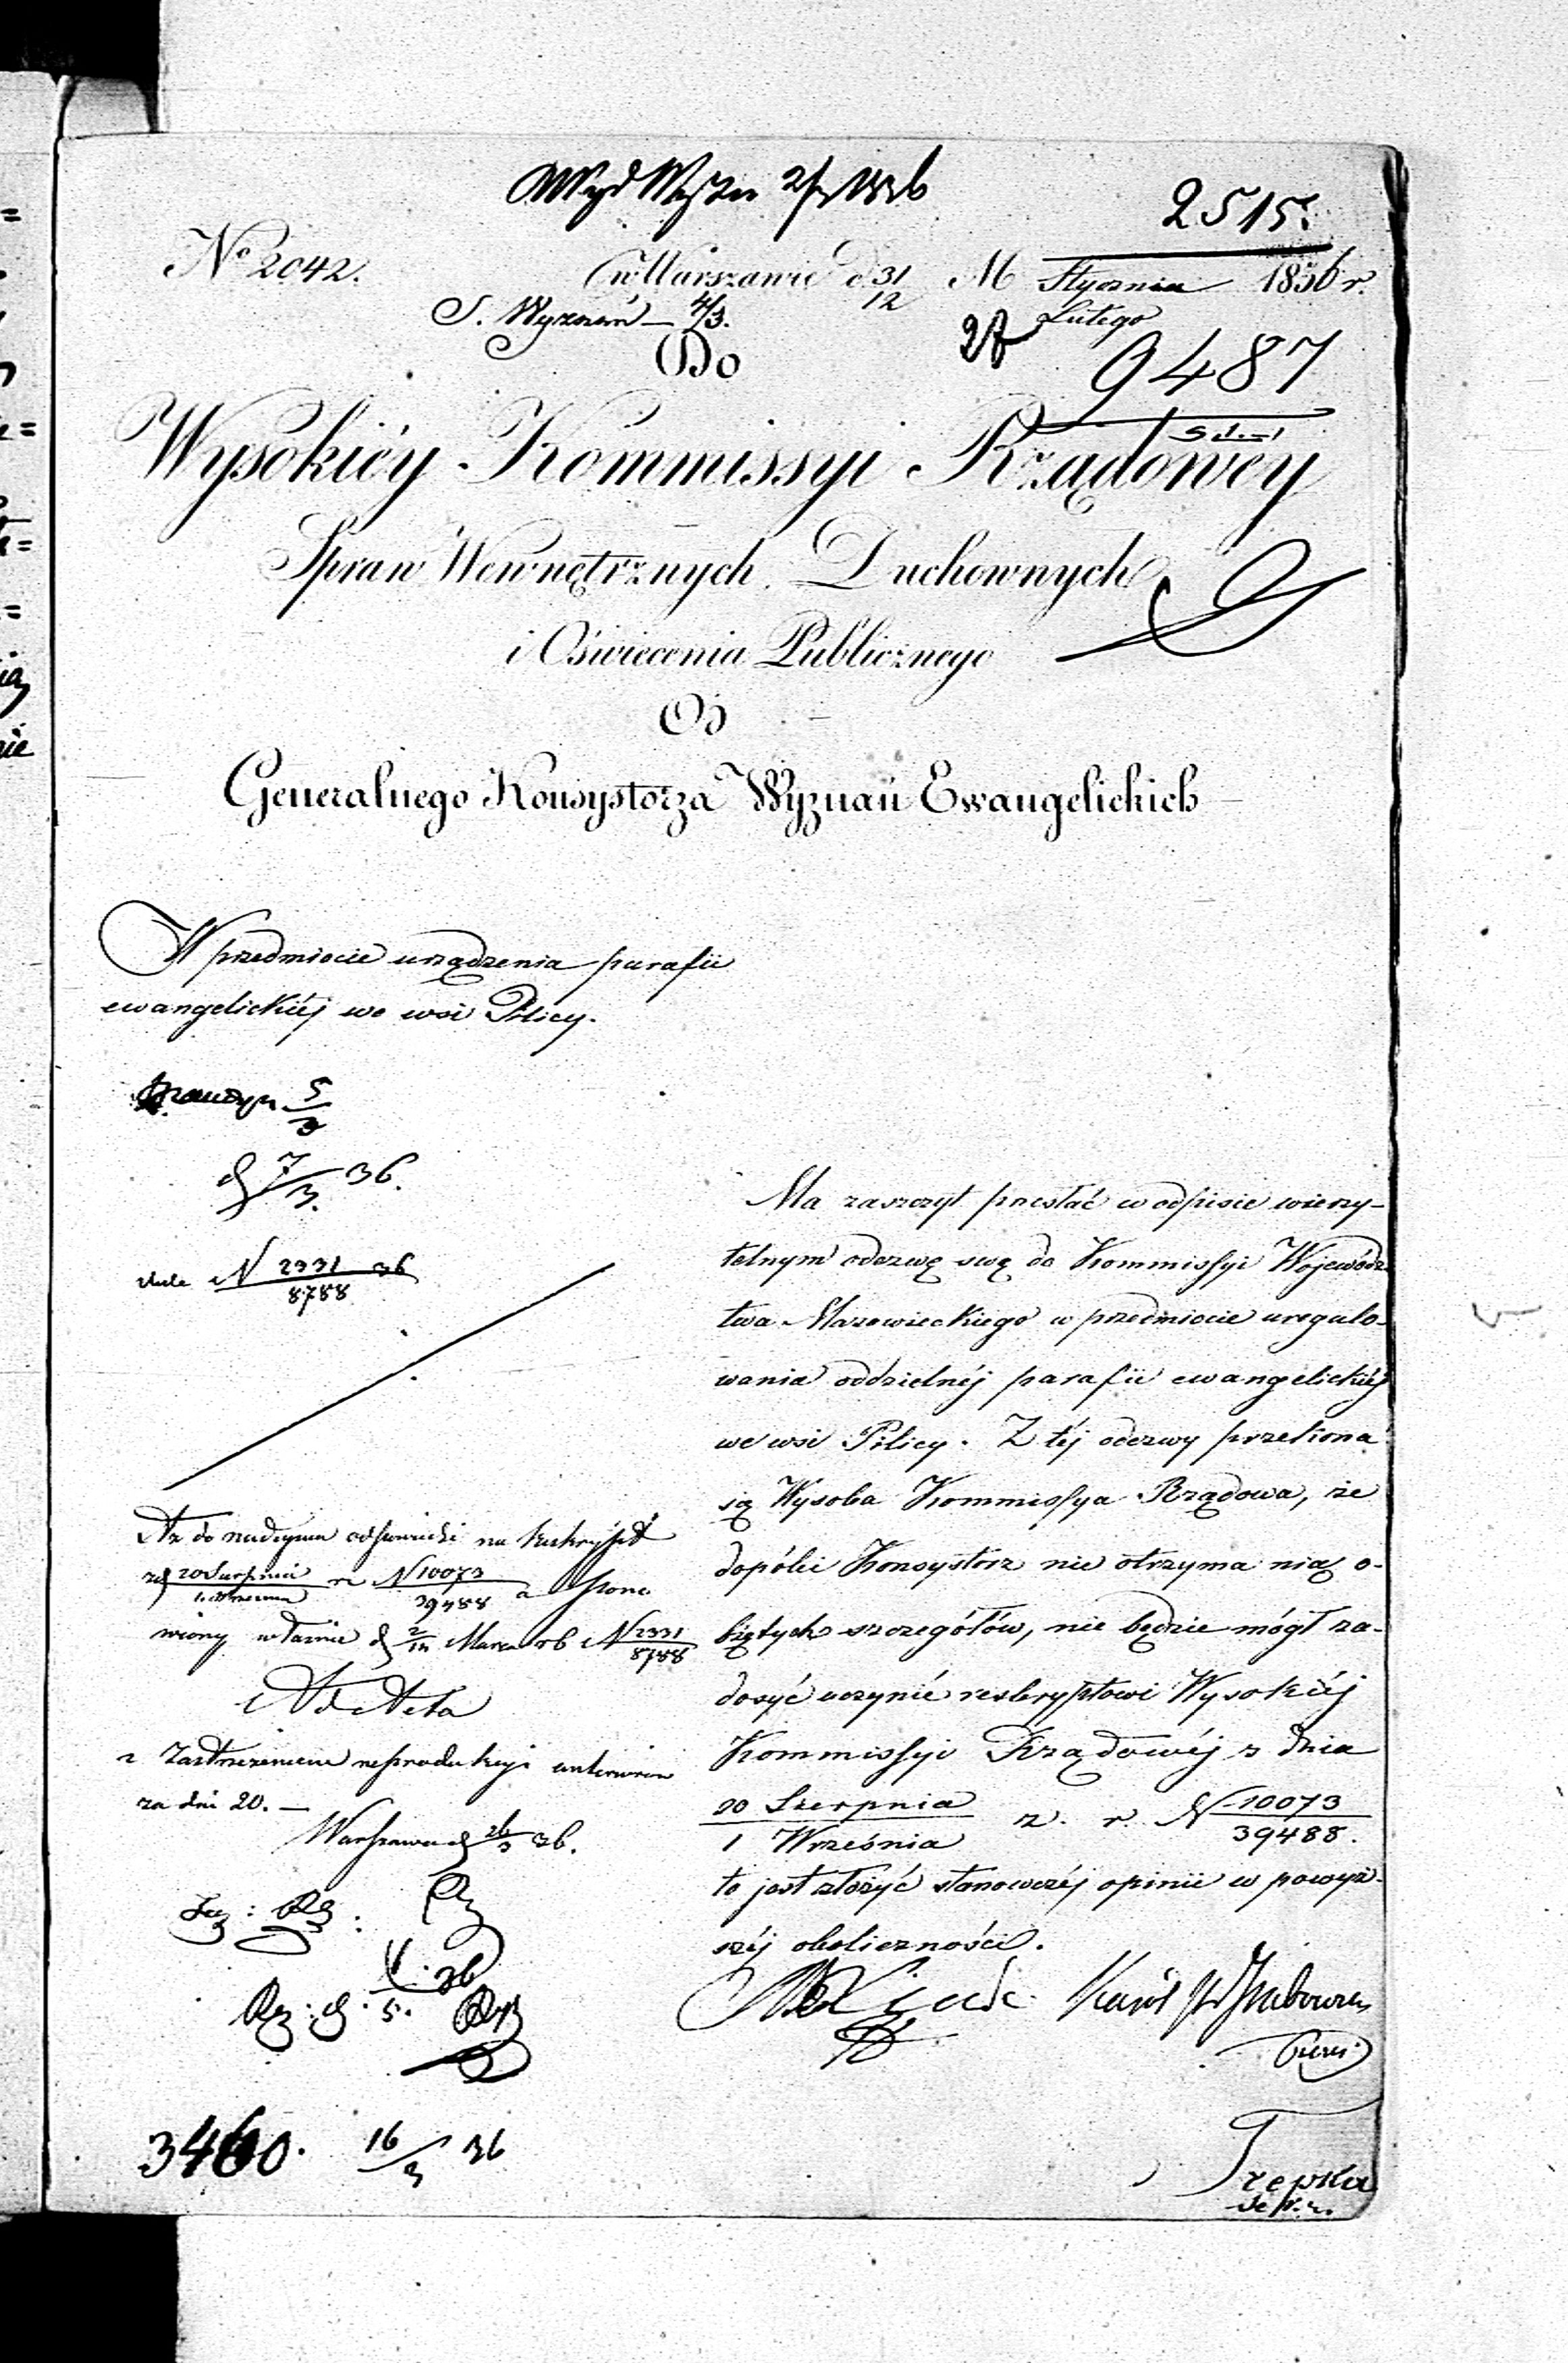 2515.
No 2042.
w Warszawie d 31/12 M Stycznia/Lutego 1836 r.
S. Wyznań 4/3.
Do
9487
Wysokiéy Kommissyi Rządowéy
Spraw Wewnętrznych, Duchownych
i Oświecenia Publicznego
Od
Generalnego Konsystorza Wyznań Ewangelickich
W przedmiocie urządzenia parafii
ewangelickiéj we wsi Pilicy.
5/3
d 7/3 36.
N 2331/8788 36
Ma zaszczyt przesłać w odpisie wierzy-
telnym odezwę swę do Kommissyi Wojewódz-
twa Mazowieckiego w przedmiocie uregulo-
wania oddzielnéj parafii ewangelickiéj
we wsi Pilicy. Z téj odezwy przekona
się Wysoka Kommissya Rządowa, że
dopóki Konsystorz nie otrzyma nią o-
biętych szczegółów, nie będzie mógł za-
dosyć uczynić reskryptowi Wysokiéj
Kommissyi Rządowéj z dnia
20 Sierpnia/1 Września z. r. N 10073/39488.
to jest złożyć stanowczéj opinii w powyż-
széj okoliczności.
Aż do nadejścia odpowiedzi na Reskrypt
z d 20 Sierpnia/1 Września N 10073/39488 a pono
wiony właśnie d 2/14 Marca rb N 2331/8788
Ad Acta
z Zastrzeżeniem reprodukcyi
za dni 20. —
Warszawa d 26/3 36.
3460. 16/3 36
Trepka